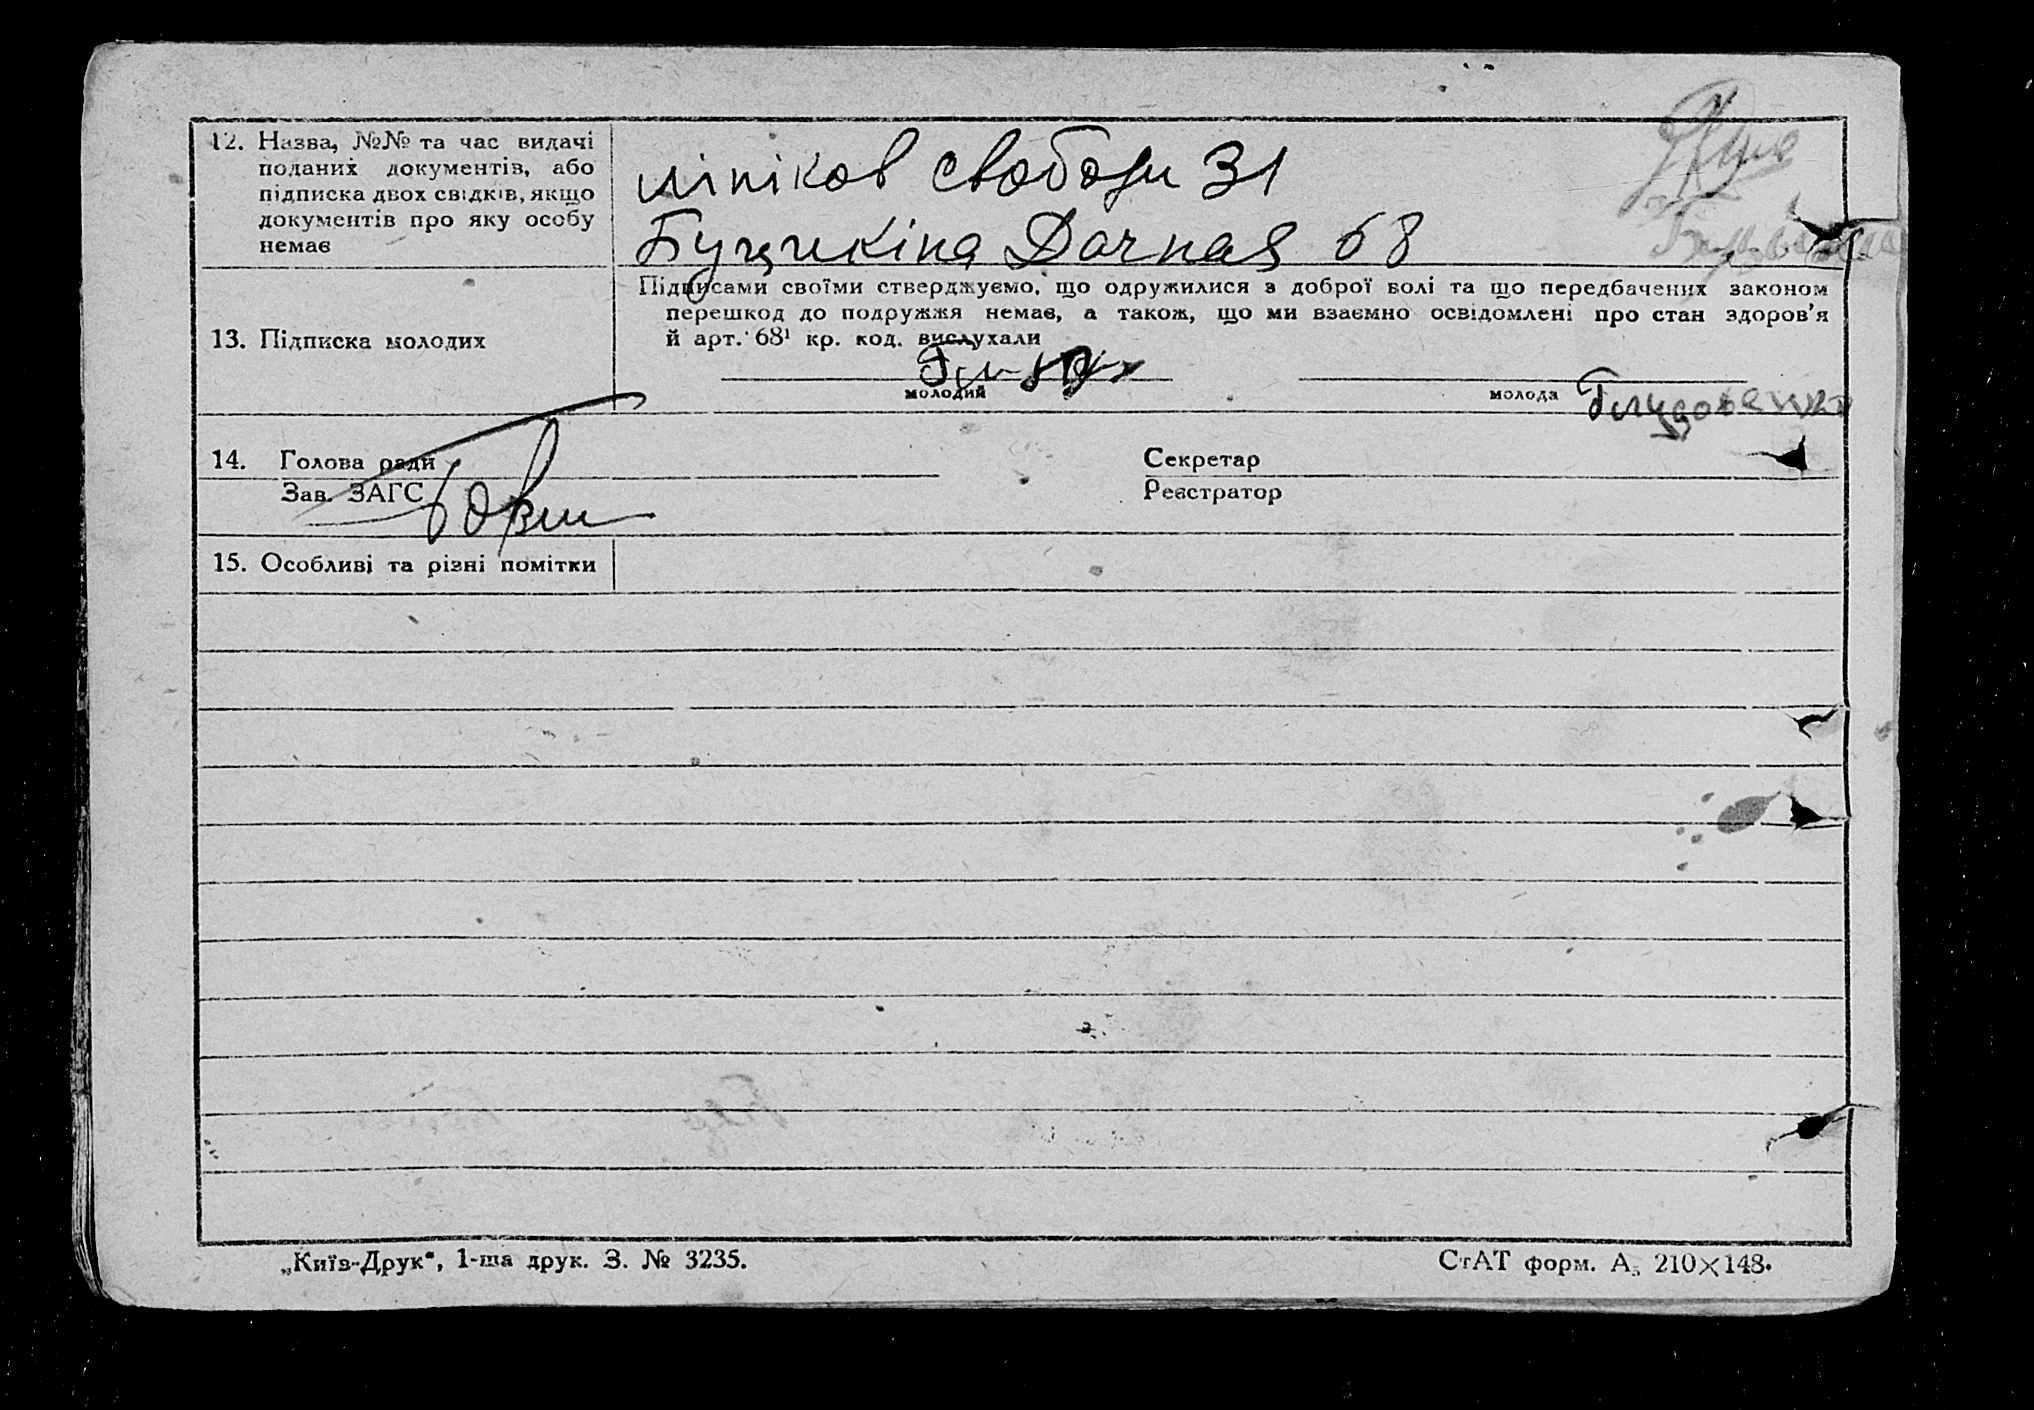 12. Назва, №№ та час видачі
поданих документів, або
підписка двох свідків, якщо
документів про яку особу
немає
свободи 31
Дачная 68
13. Підписка молодих
Підписами своїми стверджуємо, що одружилися з доброї волі та що передбачених законом
перешкод до подружжя немає, а також, що ми взаємно освідомлені про стан здоров’я
й арт. 68¹ кр. код. вислухали
молодий
молода
14. Голова ради
Секретар
Зав. ЗАГС
Реєстратор
15. Особливі та різні помітки
„Київ-Друк“, 1-ша друк. З. № 3235.
СтАТ форм. А₅ 210×148.